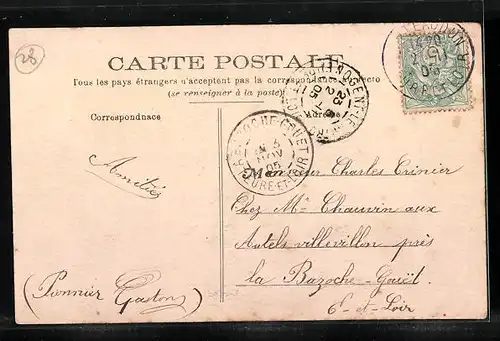 28
CARTE POSTALE
Tous les pays étrangers n'acceptent pas la correspondance au recto
(se renseigner à la poste)
Correspondnace
Adresse
NOGENT-LE-
BAZOCHE-GOUET
3
NOV
05
EURE-ET-LOIR
EURE-ET-LOIR
Amitiés
Monsieur Charles Crinier
Chez Mr Chauvin aux
Autels villevillon près
la Bazoche-Gouët
E-et-Loir
(Pionnier Gaston)